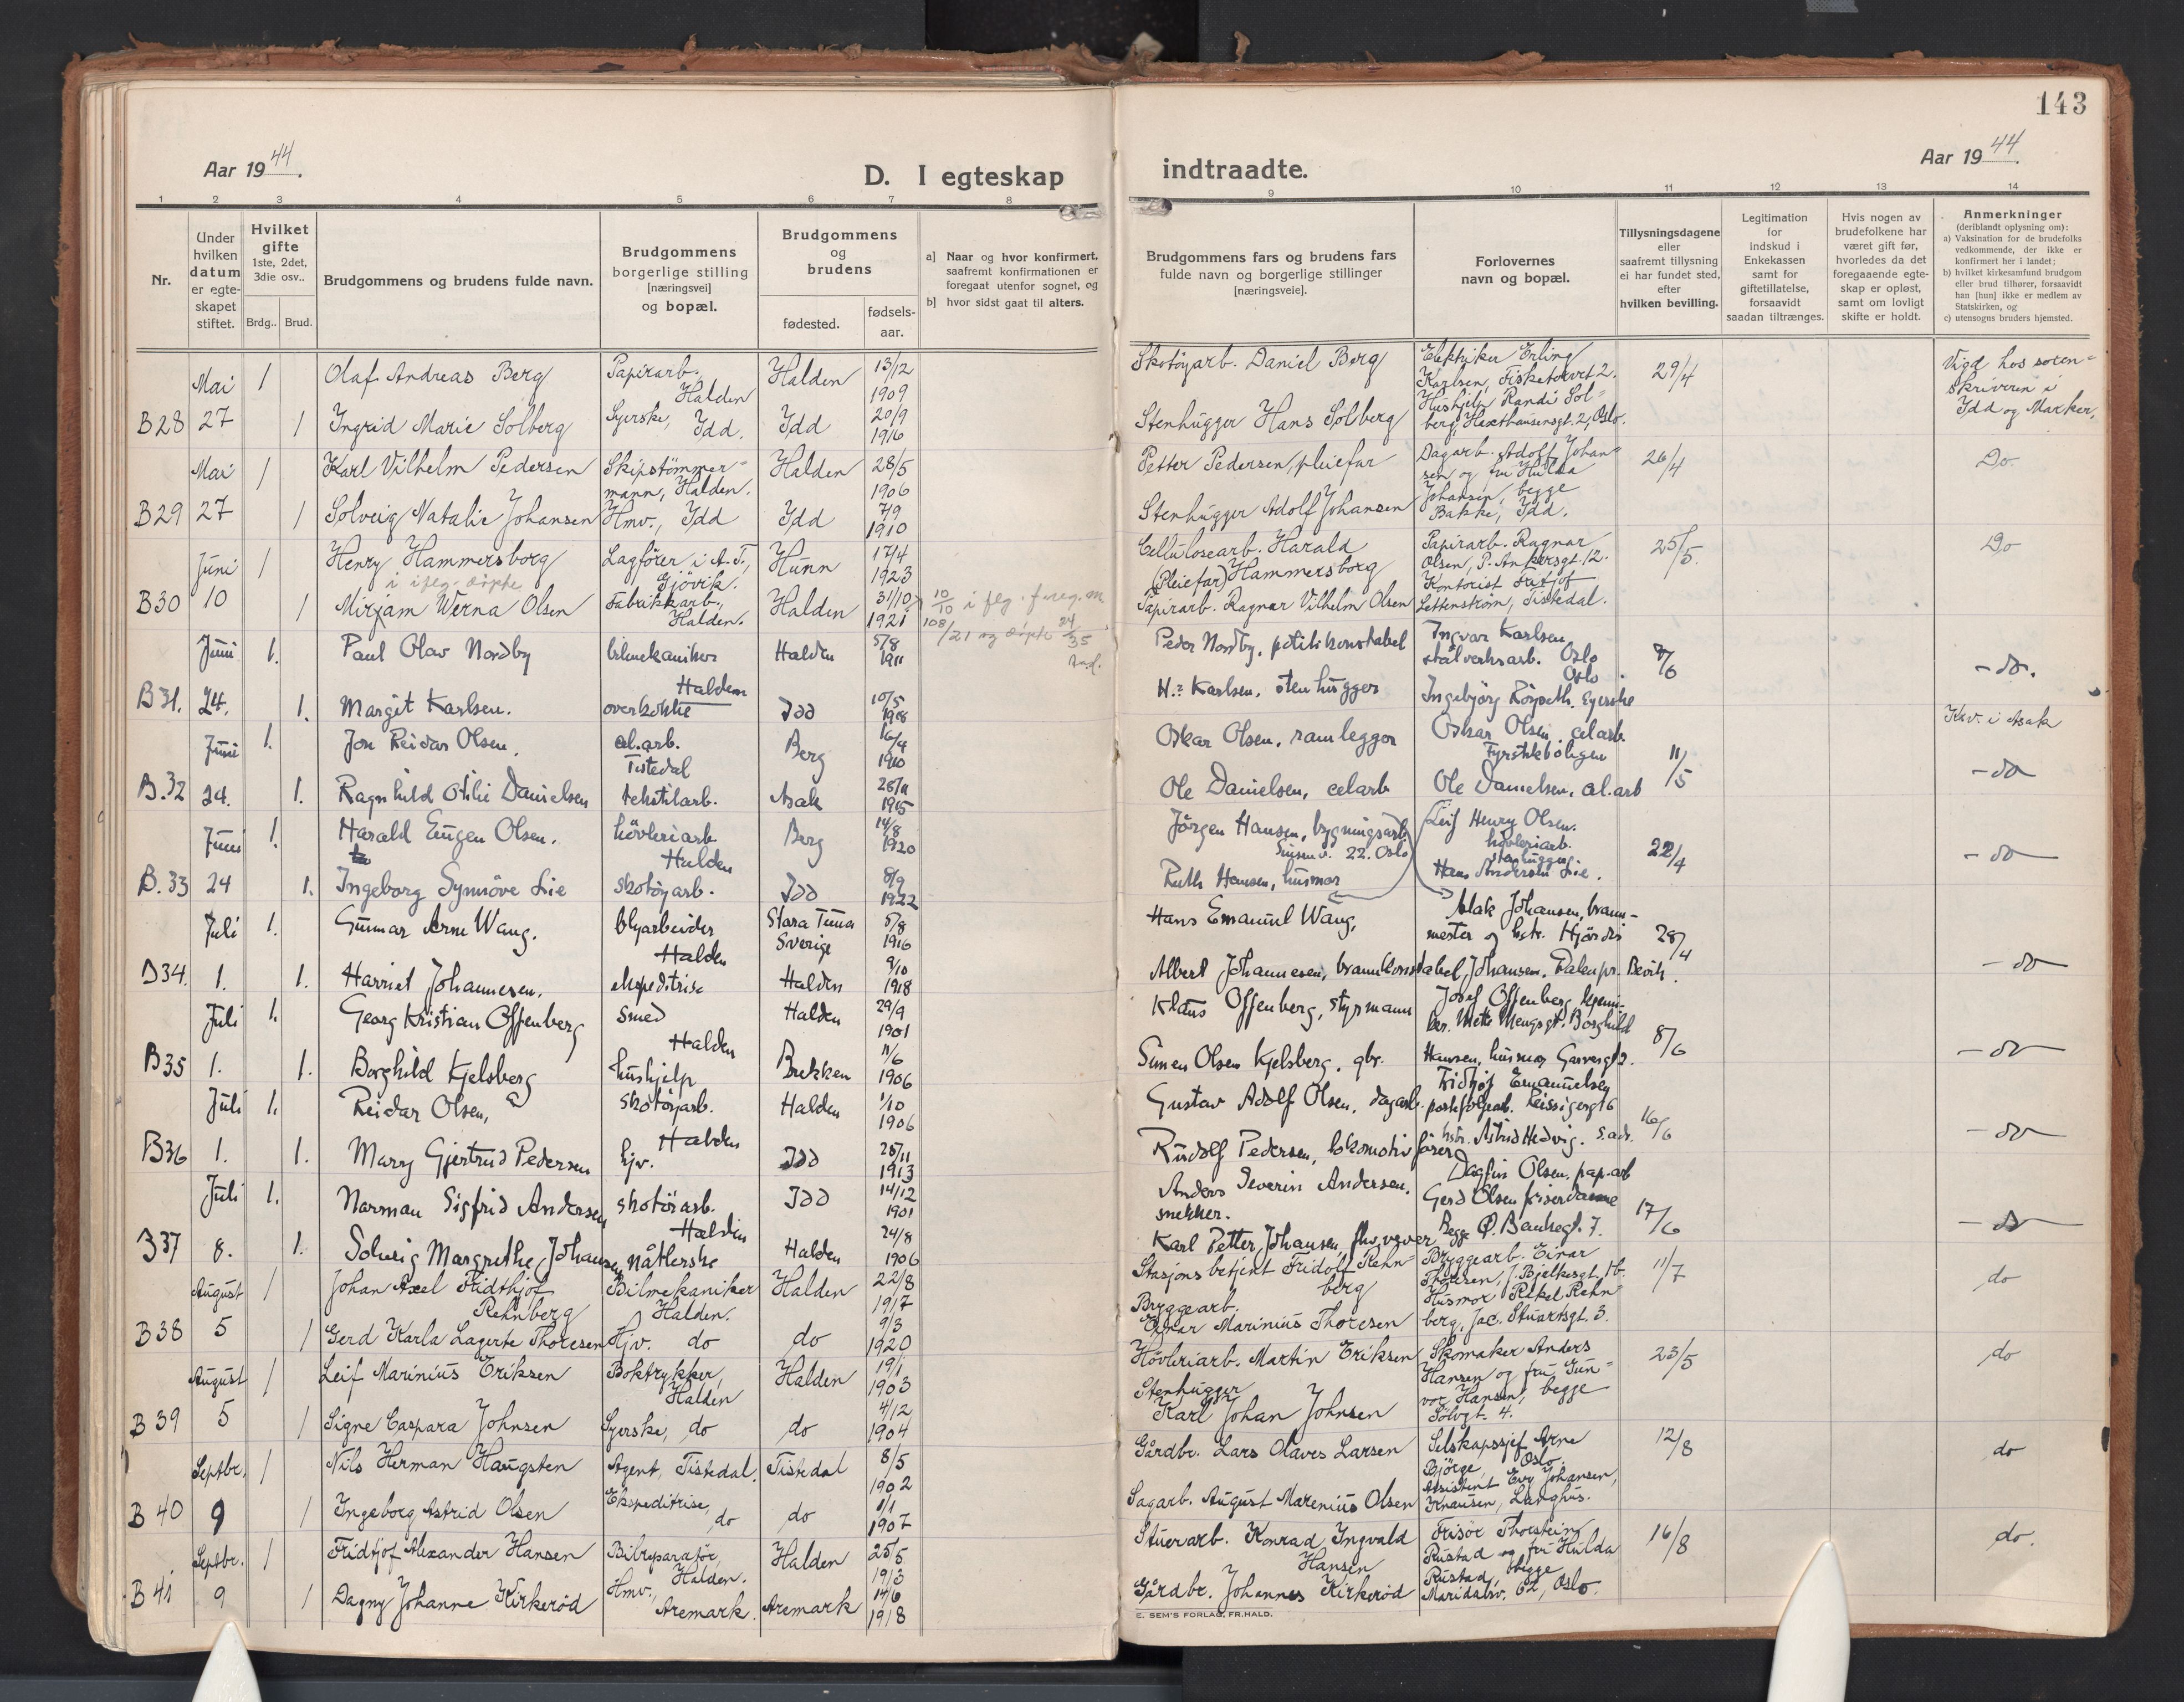 143
Aar 1944.
D. I egteskap
indtraadte.
Aar 1944.
1 2 3 4 5 6 7 8 9 10 11 12 13 14
Nr.
Under hvilken datum er egteskapet stiftet.
Hvilket gifte
1ste, 2det, 3die osv..
Brdg.. Brud.
Brudgommens og brudens fulde navn.
Brudgommens borgerlige stilling [næringsvei] og bopæl.
Brudgommens og brudens
fødested.
fødsels-aar.
a] Naar og hvor konfirmert, saafremt konfirmationen er foregaat utenfor sognet, og
b] hvor sidst gaat til alters.
Brudgommens fars og brudens fars fulde navn og borgerlige stillinger [næringsveie].
Forlovernes navn og bopæl.
Tillysningsdagene eller saafremt tillysning ei har fundet sted, efter hvilken bevilling.
Legitimation for indskud i Enkekassen samt for giftetillatelse, forsaavidt saadan tiltrænges.
Hvis nogen av brudefolkene har været gift før, hvorledes da det foregaaende egteskap er opløst, samt om lovligt skifte er holdt.
Anmerkninger
(deriblandt oplysning om):
a) Vaksination for de brudefolks vedkommende, der ikke er konfirmert her i landet;
b) hvilket kirkesamfund brudgom eller brud tilhører, forsaavidt han [hun] ikke er medlem av Statskirken, og
c) utensogns bruders hjemsted.
Mai 1 Olaf Andreas Berg Papirarb. Halden Halden 13/12 1909 Skotøyarb. Daniel Berg Elektriker Erling Karlsen, Fisketorvet 2. 29/4 Vigd hos sorenskriveren i Idd og Marker.
B28 27 1 Ingrid Marie Solberg Syerske, Idd. Idd 20/9 1916 Stenhugger Hans Solberg Hushjelp Randi Solberg, Oslo.
Mai 1 Karl Vilhelm Pedersen Skipstömmermann, Halden. Halden 28/5 1906 Petter Pedersen, pleiefar Dagarb. Adolf Johansen og fru Hulda 26/4 Do.
B29 27 1 Solveig Natalie Johansen Hmv., Idd Idd 7/9 1910 Stenhugger Adolf Johansen Johansen, begge Bakke, Idd.
Juni 1 Henry Hammersborg Lagförer i A.T., Gjövik. Hunn 17/4 1923 Cellulosearb. Harald Hammersborg (Pleiefar) Papirarb. Ragnar Olsen, P. Ankersgt. 12. 25/5. Do
B30 10 1 Mirjam Werna Olsen Fabrikkarb., Halden. Halden 31/10 1921 Papirarb. Ragnar Vilhelm Olsen Kontorist Fritjof Lettenstrøm, Tistedal.
Juni 1. Paul Olav Nordby bilmekaniker Halden Halden 5/8 1911 Peder Nordby, politikonstabel Ingvar Karlsen stålverksarb. Oslo 7/6 - do.
B31. 24. 1. Margit Karlsen. overkokke Idd 10/5 1918 H. Karlsen, stenhugger Ingebjörg syerske Oslo
Juni 1. Jon Reidar Olsen. cel.arb. Tistedal Berg 16/4 1910 Oskar Olsen, ramlegger Oskar Olsen, cel.arb. Fyrstikkboligen 11/5 Kv. i Asak
B.32 24. 1. Ragnhild Otilie Danielsen tekstilarb. Asak 1915 Ole Danielsen, cel.arb Ole Danielsen, cel.arb - do
Juni 1. Harald Eugen Olsen. hövleriarb Halden Berg 14/8 1920 Jörgen Hansen, bygningsarb. 22. Oslo Leif Henry Olsen. hövleriarb. 22/4 - do
B.33 24 1. Ingeborg Synnöve Lie skotöyarb. Idd 8/9 1922 Ruth Hansen, husmor stenhugger Hans Andersen Lie.
Juli 1. Gunnar Arne Wang. blyarbeider Halden Stora Tuna Sverige 5/8 1916 Hans Emanuel Wang, Aslak Johansen, brannmester og hstr. Hjördis 28/4
B34. 1. 1. Harriet Johannesen. ekspeditrise Halden 9/10 1918 Albert Johannesen, brannkonstabel Johansen. - do
Juli 1. Georg Kristian Offenberg smed Halden Halden 29/9 1901 Klaus Offenberg, styrmann Josef Offenberg 8/6
B35 1. 1. Borghild Kjelsberg hushjelp Brekken 11/6 1906 Simen Olsen Kjelsberg, gbr. Borghild Hansen, husmor - do
Juli 1. Reidar Olsen, skotöyarb. Halden Halden 1/10 1906 Gustav Adolf Olsen, dagarb. Fridtjof Emanuelsen 16/6
B36 1. 1. Mary Gjertrud Pedersen hjv. Idd 28/11 1913 Rudolf Pedersen, lokomotivförer hstr. Astrid Hedvig. s.adr. - do
Juli 1. Norman Sigfrid Andersen skotöiarb. Halden Idd 14/12 1901 Anders Severin Andersen, snekker. Dagfin Olsen, pap.arb Gerd Olsen friserdame 17/6
B37 8. 1. Solveig Margrethe Johansen nåtlerske Halden 24/8 1906 Karl Petter Johansen, - do
August 1 Johan Axel Fridthjof Rehnberg Bilmekaniker Halden. Halden 22/8 1917 Stasjonsbetjent Fridolf Rehnberg Bryggearb. Einar Thoresen, J. Bjelkesgt. 11/7 do
B 38 5 1 Gerd Karla Lagerte Thoresen Hjv. do do 9/3 1920 Bryggearb. Einar Marinius Thoresen Husmor Rakel Rehnberg, Jac. Stuartsgt. 3.
August 1 Leif Marinius Eriksen Boktrykker, Halden Halden 19/1 1903 Hövleriarb. Martin Eriksen Skomaker Anders Hansen og fru Gun- 23/5 do
B 39 5 1 Signe Caspara Johnsen Syerske, do do 4/12 1904 Stenhugger Karl Johan Johnsen vor Hansen, begge Sölvgt. 4.
Septbr. 1 Nils Herman Haugsten Agent, Tistedal. Tistedal 8/5 1902 Gårdbr. Lars Olaves Larsen Selskapssjef Arne Björge, Oslo. 12/8 do
B 40 9 1 Ingeborg Astrid Olsen Ekspeditrise, do do 1/1 1907 Sagarb. August Marenius Olsen Assistent Evy Johansen, Knausen, Langhus.
Septbr. 1 Fridtjof Alexander Hansen Bilreparatör, Halden. Halden 25/5 1913 Stuerarb. Konrad Ingvald Hansen Frisör Thorstein Rustad og fru Hulda 16/8 do.
B 41 9 1 Dagny Johanne Kirkeröd Hmv., Aremark. Aremark 14/6 1918 Gårdbr. Johannes Kirkeröd Rustad, begge Maridalsv. 62, Oslo.
E. SEM'S FORLAG, FR.HALD.